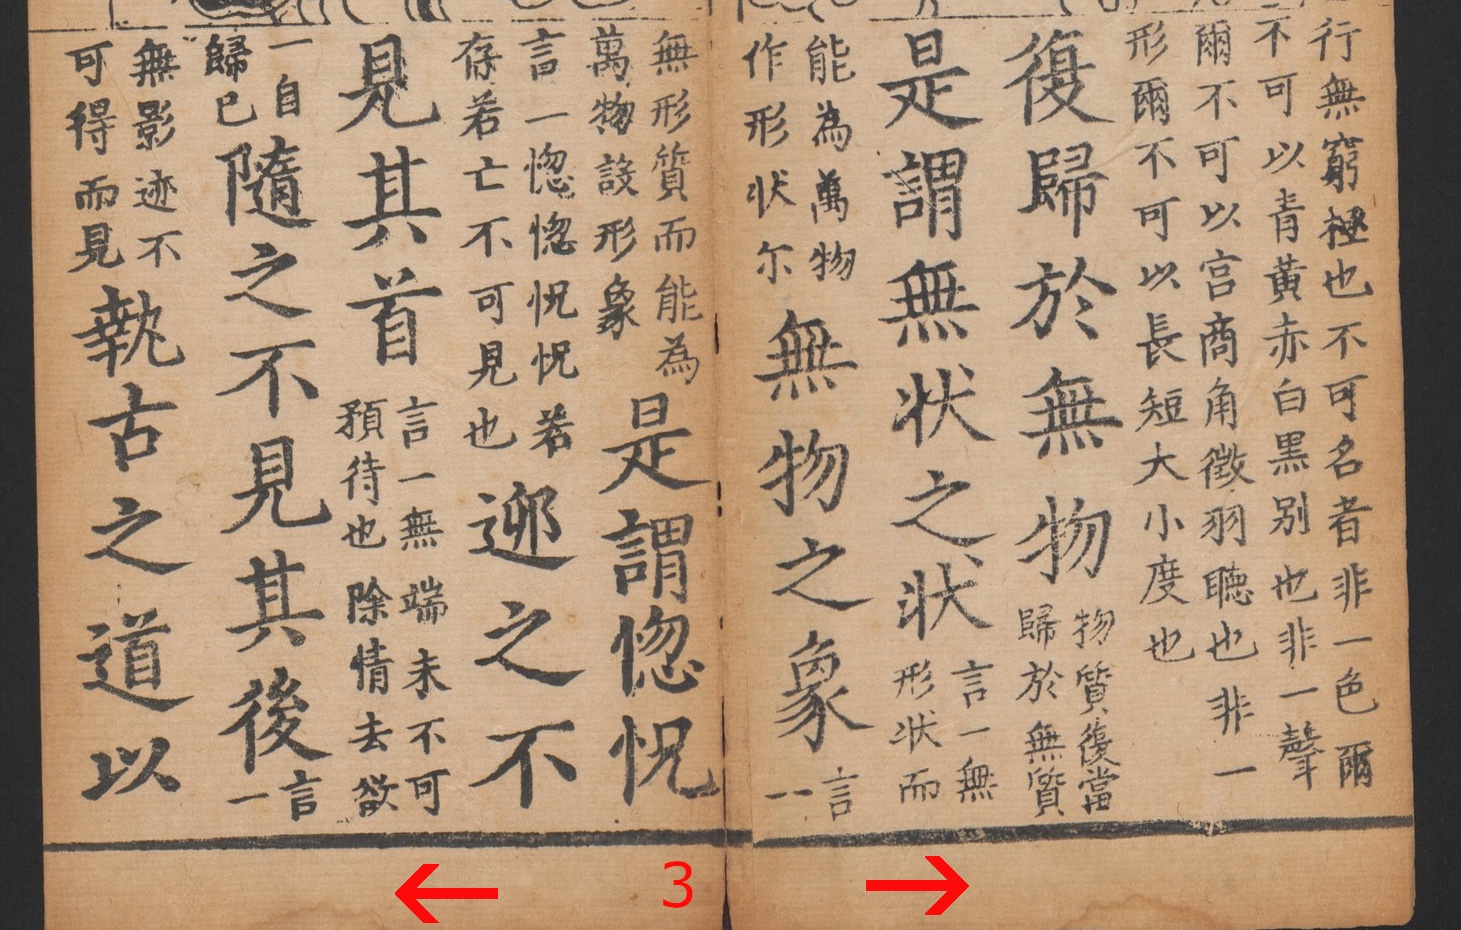 行無窮極也不可名者非一色爾
不可以青黃赤白黑別也非一聲
爾不可以宮商角徵羽聽也非一
形爾不可以長短大小度也
復歸於無物物質復當歸於無質
是謂無状之状言一無形状而
能為萬物作形状尔無物之象言一
無形質而能為萬物設形象是謂惚怳
言一惚惚怳怳若存若亡不可見也迎之不
見其首言一無端末不可預待也除情去欲
一自歸已隨之不見其後言一
無影迹不可得而見執古之道以
← 3 →